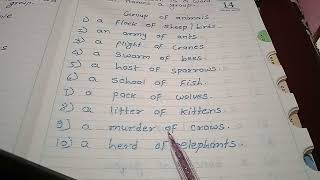 a word
names a group.
group.
14
Group of animals
1) a flock of sheep / birds.
2) an army of ants.
3) a flight of cranes
4) a swarm of bees.
5) a host of sparrows.
6) a school of fish.
7) a pack of wolves.
8) a litter of kittens.
9) a murder of crows.
10) a herd of elephants.